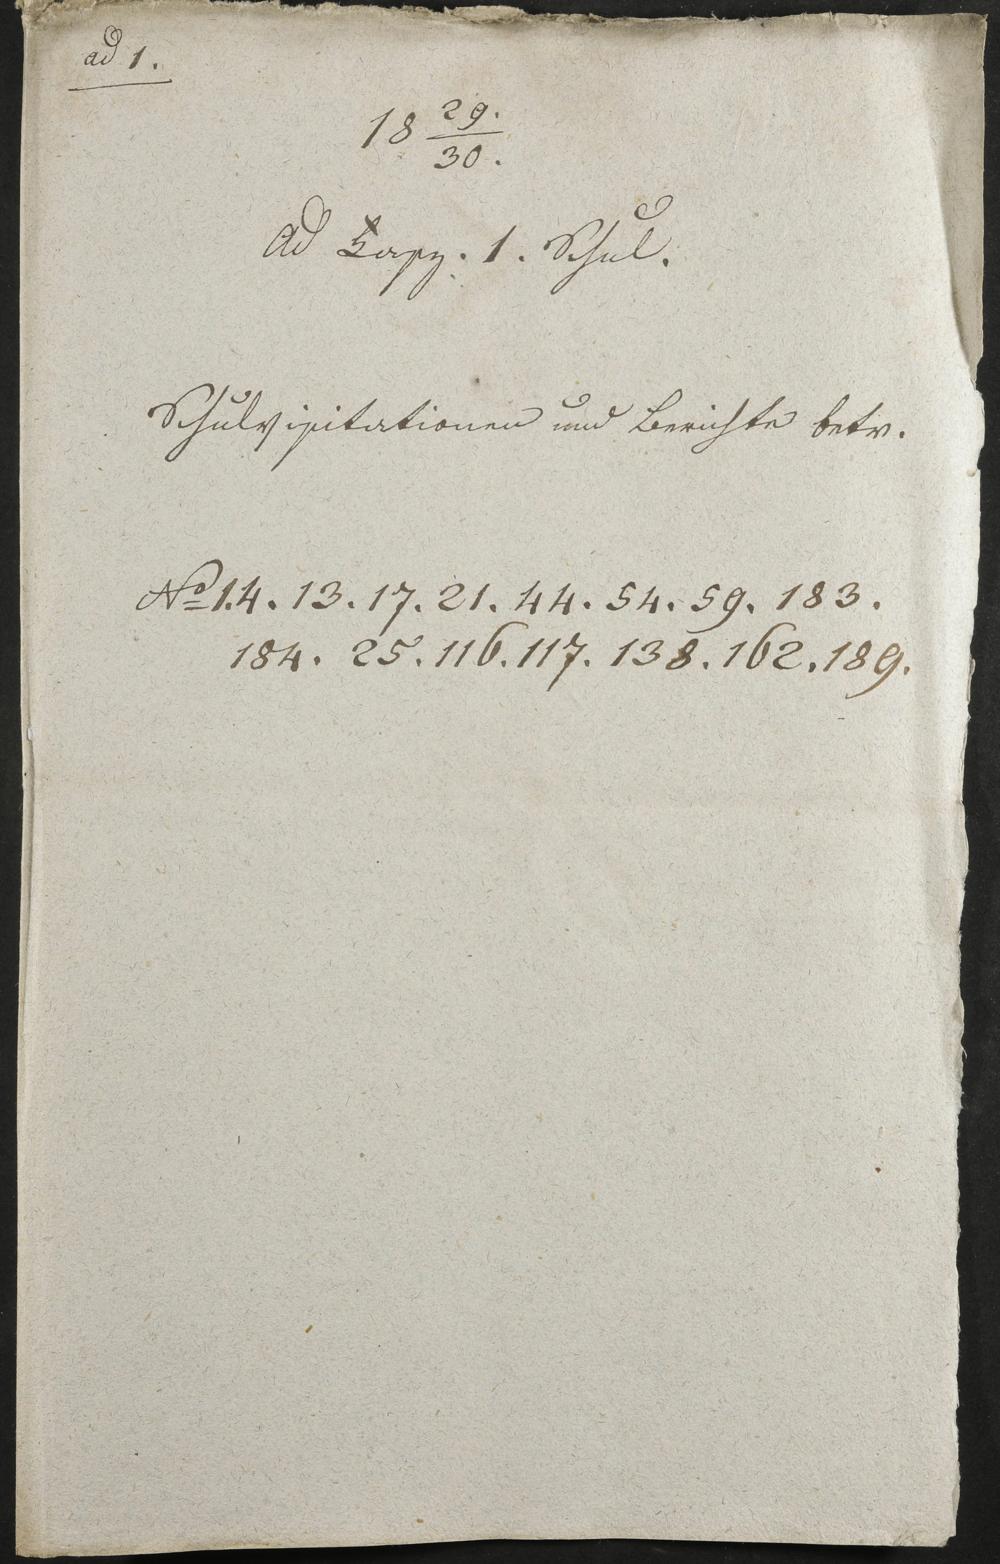 ad 1.
18 29./30.
Ad Kapz. 1. Schul.
Schulvisitationen und Berichte betr.
No 1.4. 13. 17. 21. 44. 54. 59. 183.
184. 25. 116. 117. 138. 162. 189.